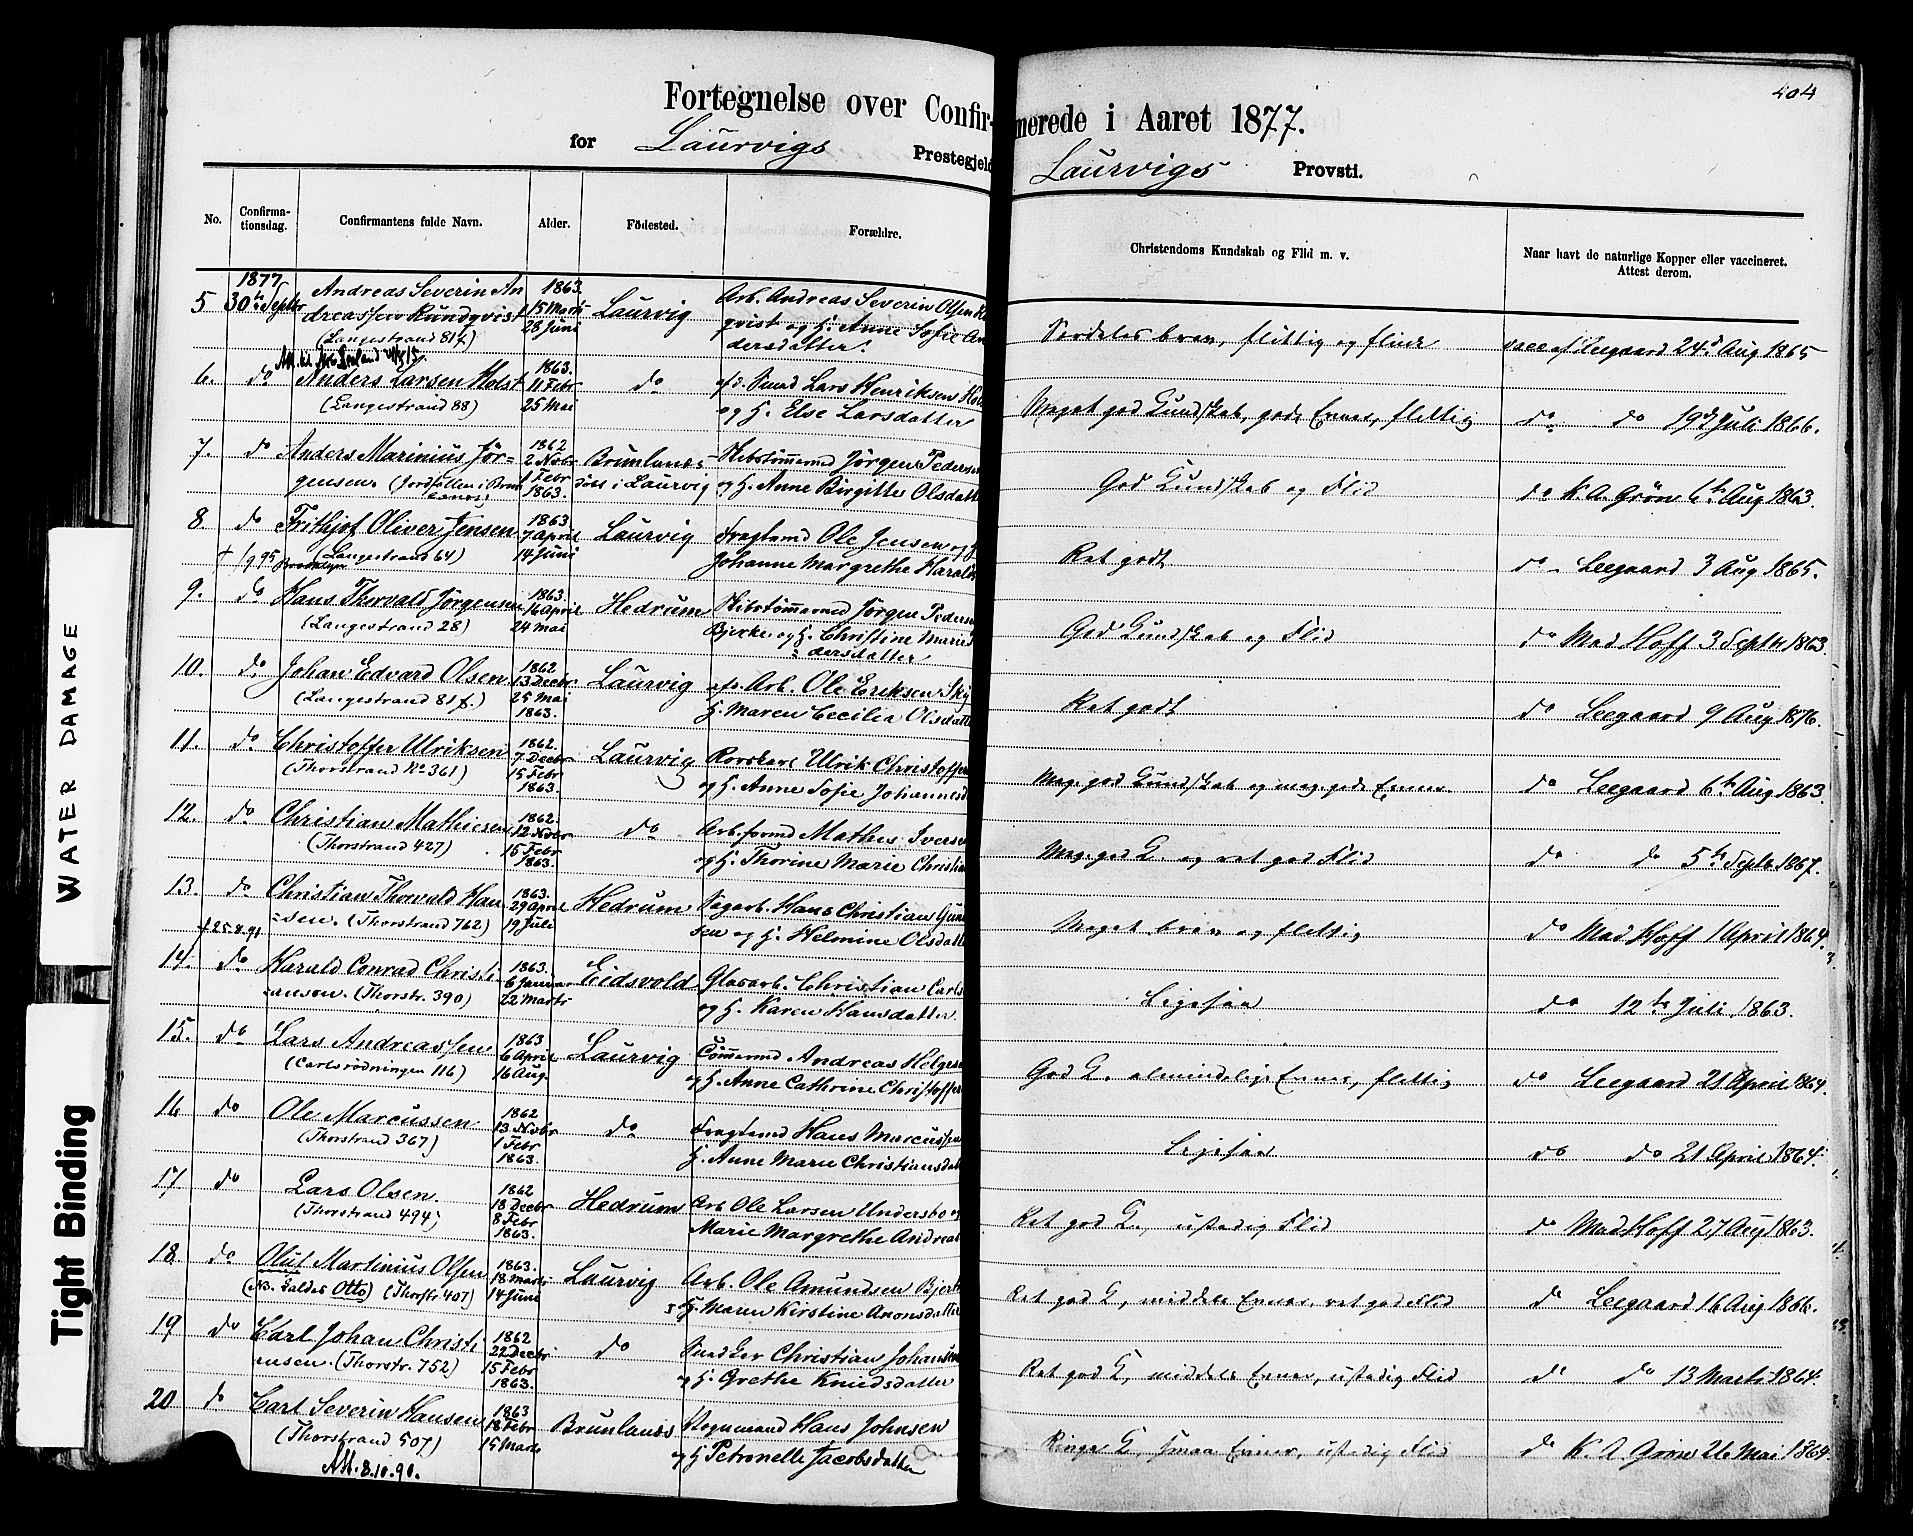 404
Fortegnelse over Confirmerede i Aaret 1877.
for Laurvigs Prestegjeld Laurvigs Provsti.
No. Confirmationsdag. Confirmantens fulde Navn. Alder. Födested. Forældre. Christendoms Kundskab og Flid m. v. Naar havt de naturlige Kopper eller vaccineret. Attest derom.
1877 Andreas Severin An 1863. Arb. Andreas Severin Olsen
5 30te Septbr dreassen Rundqvist 15 Marts Laurvig qvist og H. Anne Sofie An Serdeles brav, flittig og flink vacc af Leegaard 24d Aug 1865
(Langestrand 81f) 28 Juni dersdatter.
6. do Anders Larsen Holst 1863. 11 Febr do Smed Lars Henriksen Meget god Kundskab, gode Evner, flittig do do 19de Juli 1866.
(Langestrand 88) 25 Mai og H. Else Larsdatter
7. do Anders Marinius Jör- 1862 2 Novbr Brunlanæs Skibstømmermd Jörgen Pedersen God Kundskab og Flid do K. A. Grön 6te Aug 1863.
gensen. 1 Febr 1863. i Laurvig og H. Anne Birgitte Olsdatt
8 do Frithjof Oliver Jensen 1863 7 April Laurvig Fragtemd Ole Jensen og H. Ret godt do - Leegaard 3 Aug 1865.
(Langestrand 64) 14 Juni Johanne Margrethe Harald
9. do Hans Thorvald Jörgensen 1863. 16 April Hedrum Skibstømmermd Jörgen Peders God Kundskab og Flid do Mad Hoff 3 Septbr 1863.
(Langestrand 28) 24 Mai Bjerke og H. Christine Marie
dersdatter
10. do Johan Edvard Olsen 1862 13 Decbr Laurvig Arb. Ole Eriksen Ret godt do Leegaard 9 Aug 1876.
(Langestrand 81f.) 25 Mai 1863. H. Maren Cecilia Olsdatt
11. do Christoffer Ulriksen 1862. 7 Decbr Laurvig Rorskarl Ulrik Christoffer Meg. god Kundskab og meg. gode Evner do Leegaard 6te Aug 1863.
(Thorstrand No 361) 15 Febr 1863. og H. Anne Sofie Johannesd
12. do Christian Mathiesen 1862. 12 Novbr do Arb.formd Mathis Iversen Meg. god K. og ret god Flid do do 5te Septbr 1867.
(Thorstrand 427) 15 Febr 1863. og H. Thorine Marie Christia
13. do Christian Thorvald Han 1863. 29 April Hedrum Sagarb. Hans Christian Meget brav og flittig do Mad Hoff 1 April 1864.
† 25.8.91 sen. (Thorstrand 762) 19 Juli sen og H. Helmine Olsdatt
14. do Harald Conrad Christi- 1863. 6 Januar Eidsvold Glasarb. Christian Carls Ligesaa do 12te Juli 1863.
ansen. (Thorstr. 390) 22 Marts og H. Karen Hansdatter.
15. do Lars Andreassen 1863 6 April Laurvig Tømmermd Andreas Holgers God K. almindelige Evner, flittig do Leegaard 21 April 1864.
(Carlsrödningen 116) 16 Aug. og H. Anne Cathrine Christoffer
16 do Ole Marcussen 1862 13 Novbr do Fragtemd Hans Marcussen Ligesaa do do 21 April 1864.
(Thorstrand 367) 1 Febr 1863. H. Anne Marie Christiansdat
17 do Lars Olsen 1862 18 Decbr Hedrum Arb Ole Larsen Ret god K., ustadig Flid do Mad Hoff 27 Aug 1863.
(Thorstrand 494) 8 Febr 1863. Marie Margrethe Andreas
18. do Oluf Martinius Olsen 1863. 18 Marts Laurvig Arb. Ole Amundsen Bjerke Ret god K, middels Evner, ret god Flid do Leegaard 16 Aug 1866.
(NB. kaldes Otto) (Thorstr. 407) 14 Juni H. Maren Kirstine Aronsdatter
19 do Carl Johan Christi- 1862 22 Decbr do Snedker Christian Johansen Ret god K, middels Evner, ustadig Flid do do 13 Marts 1864.
ensen. (Thorstr. 752) 15 Febr 1863. og H. Grethe Knudsdatter
20 do Carl Severin Hansen 1863 18 Febr Brunlanæs Vognmand Hans Johnsen Ringe K, smaa Evner, ustadig Flid do K. A Grön 26 Mai 1864.
(Thorstrand 507) 15 Marts og H Petronelle Jacobsdatter
Att. 8.10.90.
WATER DAMAGE
Tight Binding